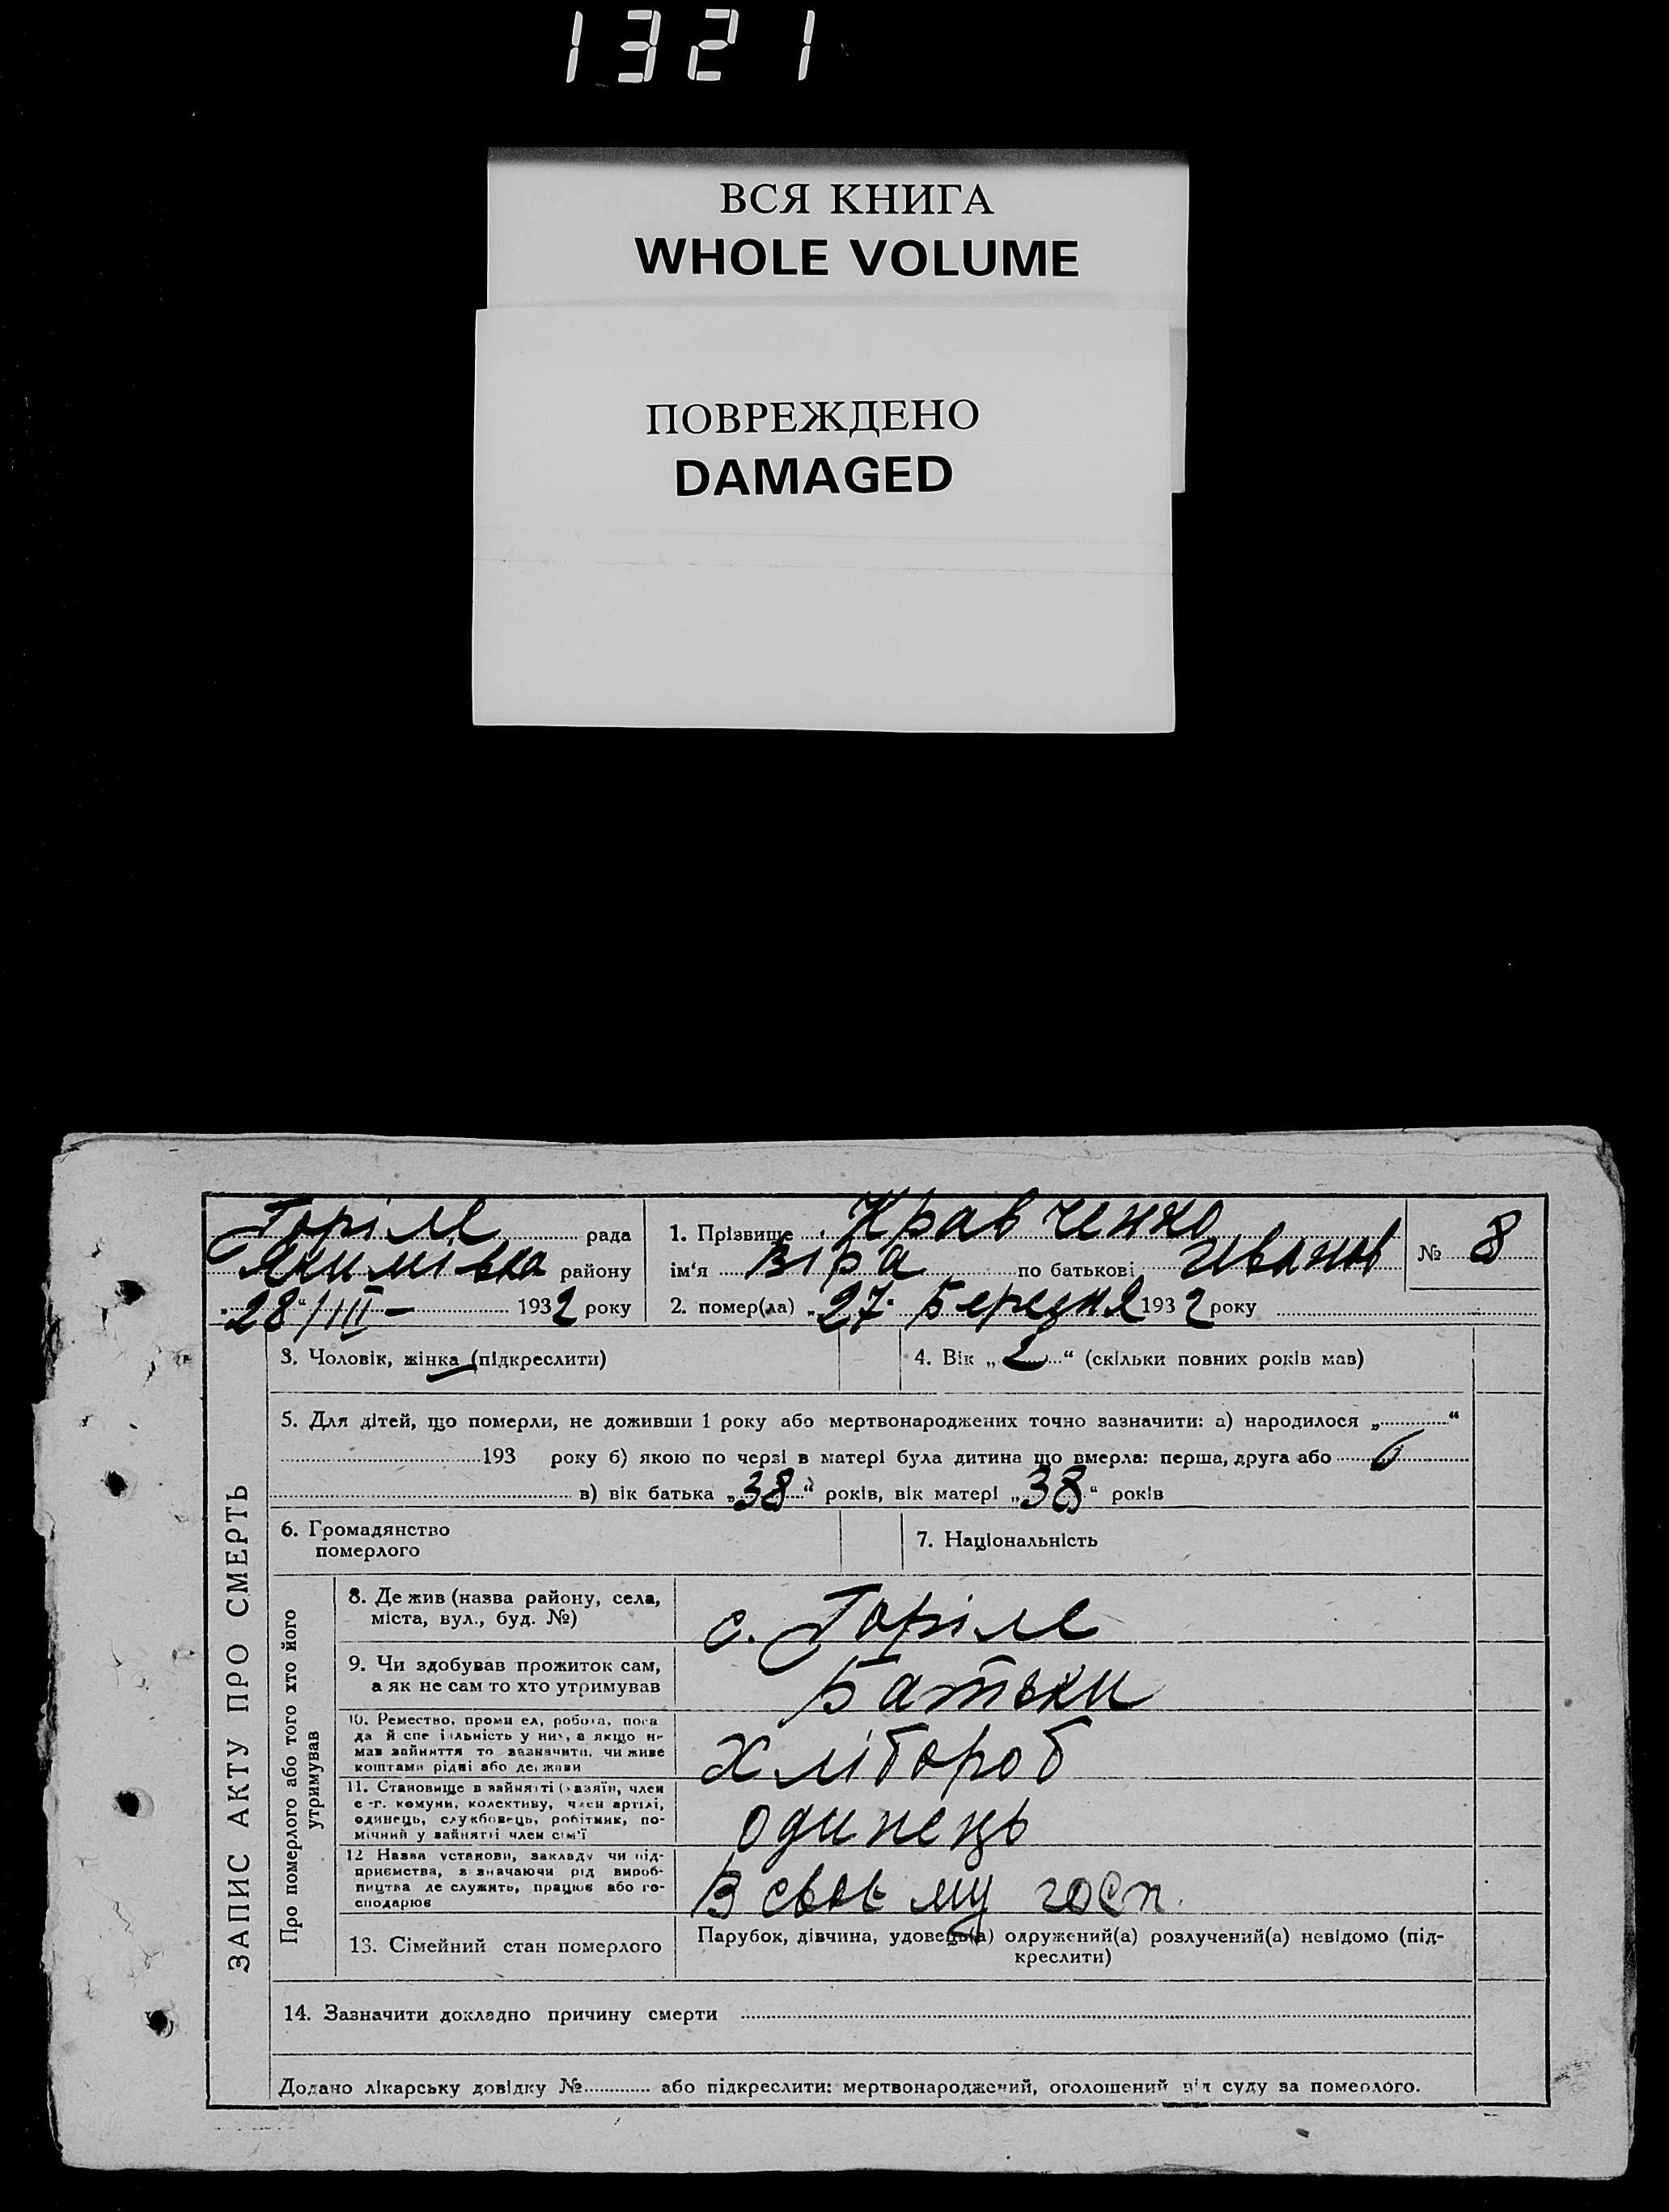 1321
ВСЯ КНИГА
WHOLE VOLUME
ПОВРЕЖДЕНО
DAMAGED
Горіле рада
1. Прізвище Кравченко
№ 8
Якимівка району
ім'я Віра по батькові Иванов
"28"/III – 1932 року
2. помер(ла) „27" Березня 1932 року
3. Чоловік, жінка (підкреслити)
4. Вік „2" (скільки повних років мав)
5. Для дітей, що померли, не доживши 1 року або мертвонароджених точно зазначити: а) народилося „ "
193 року б) якою по черзі в матері була дитина що вмерла: перша, друга або 6
в) вік батька „38" років, вік матері „38" років
6. Громадянство
померлого
7. Національність
ЗАПИС АКТУ ПРО СМЕРТЬ
Про померлого або того хто його
утримував
8. Де жив (назва району, села,
міста, вул., буд. №)
с. Горіле
9. Чи здобував прожиток сам,
а як не сам то хто утримував
Батьки
10. Ремество, промисел, робота, поса
да й спеціальність у них, а якщо не
мав зайняття то зазначити, чи живе
коштами рідні або держави
Хлібороб
11. Становище в зайнятті (хазяїн, член
с.-г. комуни, колективу, член артілі,
одинець, службовець, робітник, по-
мічний у зайнятті член сім'ї
одинець
12 Назва установи, закладу чи під-
приємства, зазначаючи рід вироб-
ництва де служить, працює або го-
сподарює
В своему госп.
13. Сімейний стан померлого
Парубок, дівчина, удовець(а) одружений(а) розлучений(а) невідомо (під-
креслити)
14. Зазначити докладно причину смерти
Додано лікарську довідку № або підкреслити: мертвонароджений, оголошений від суду за померлого.